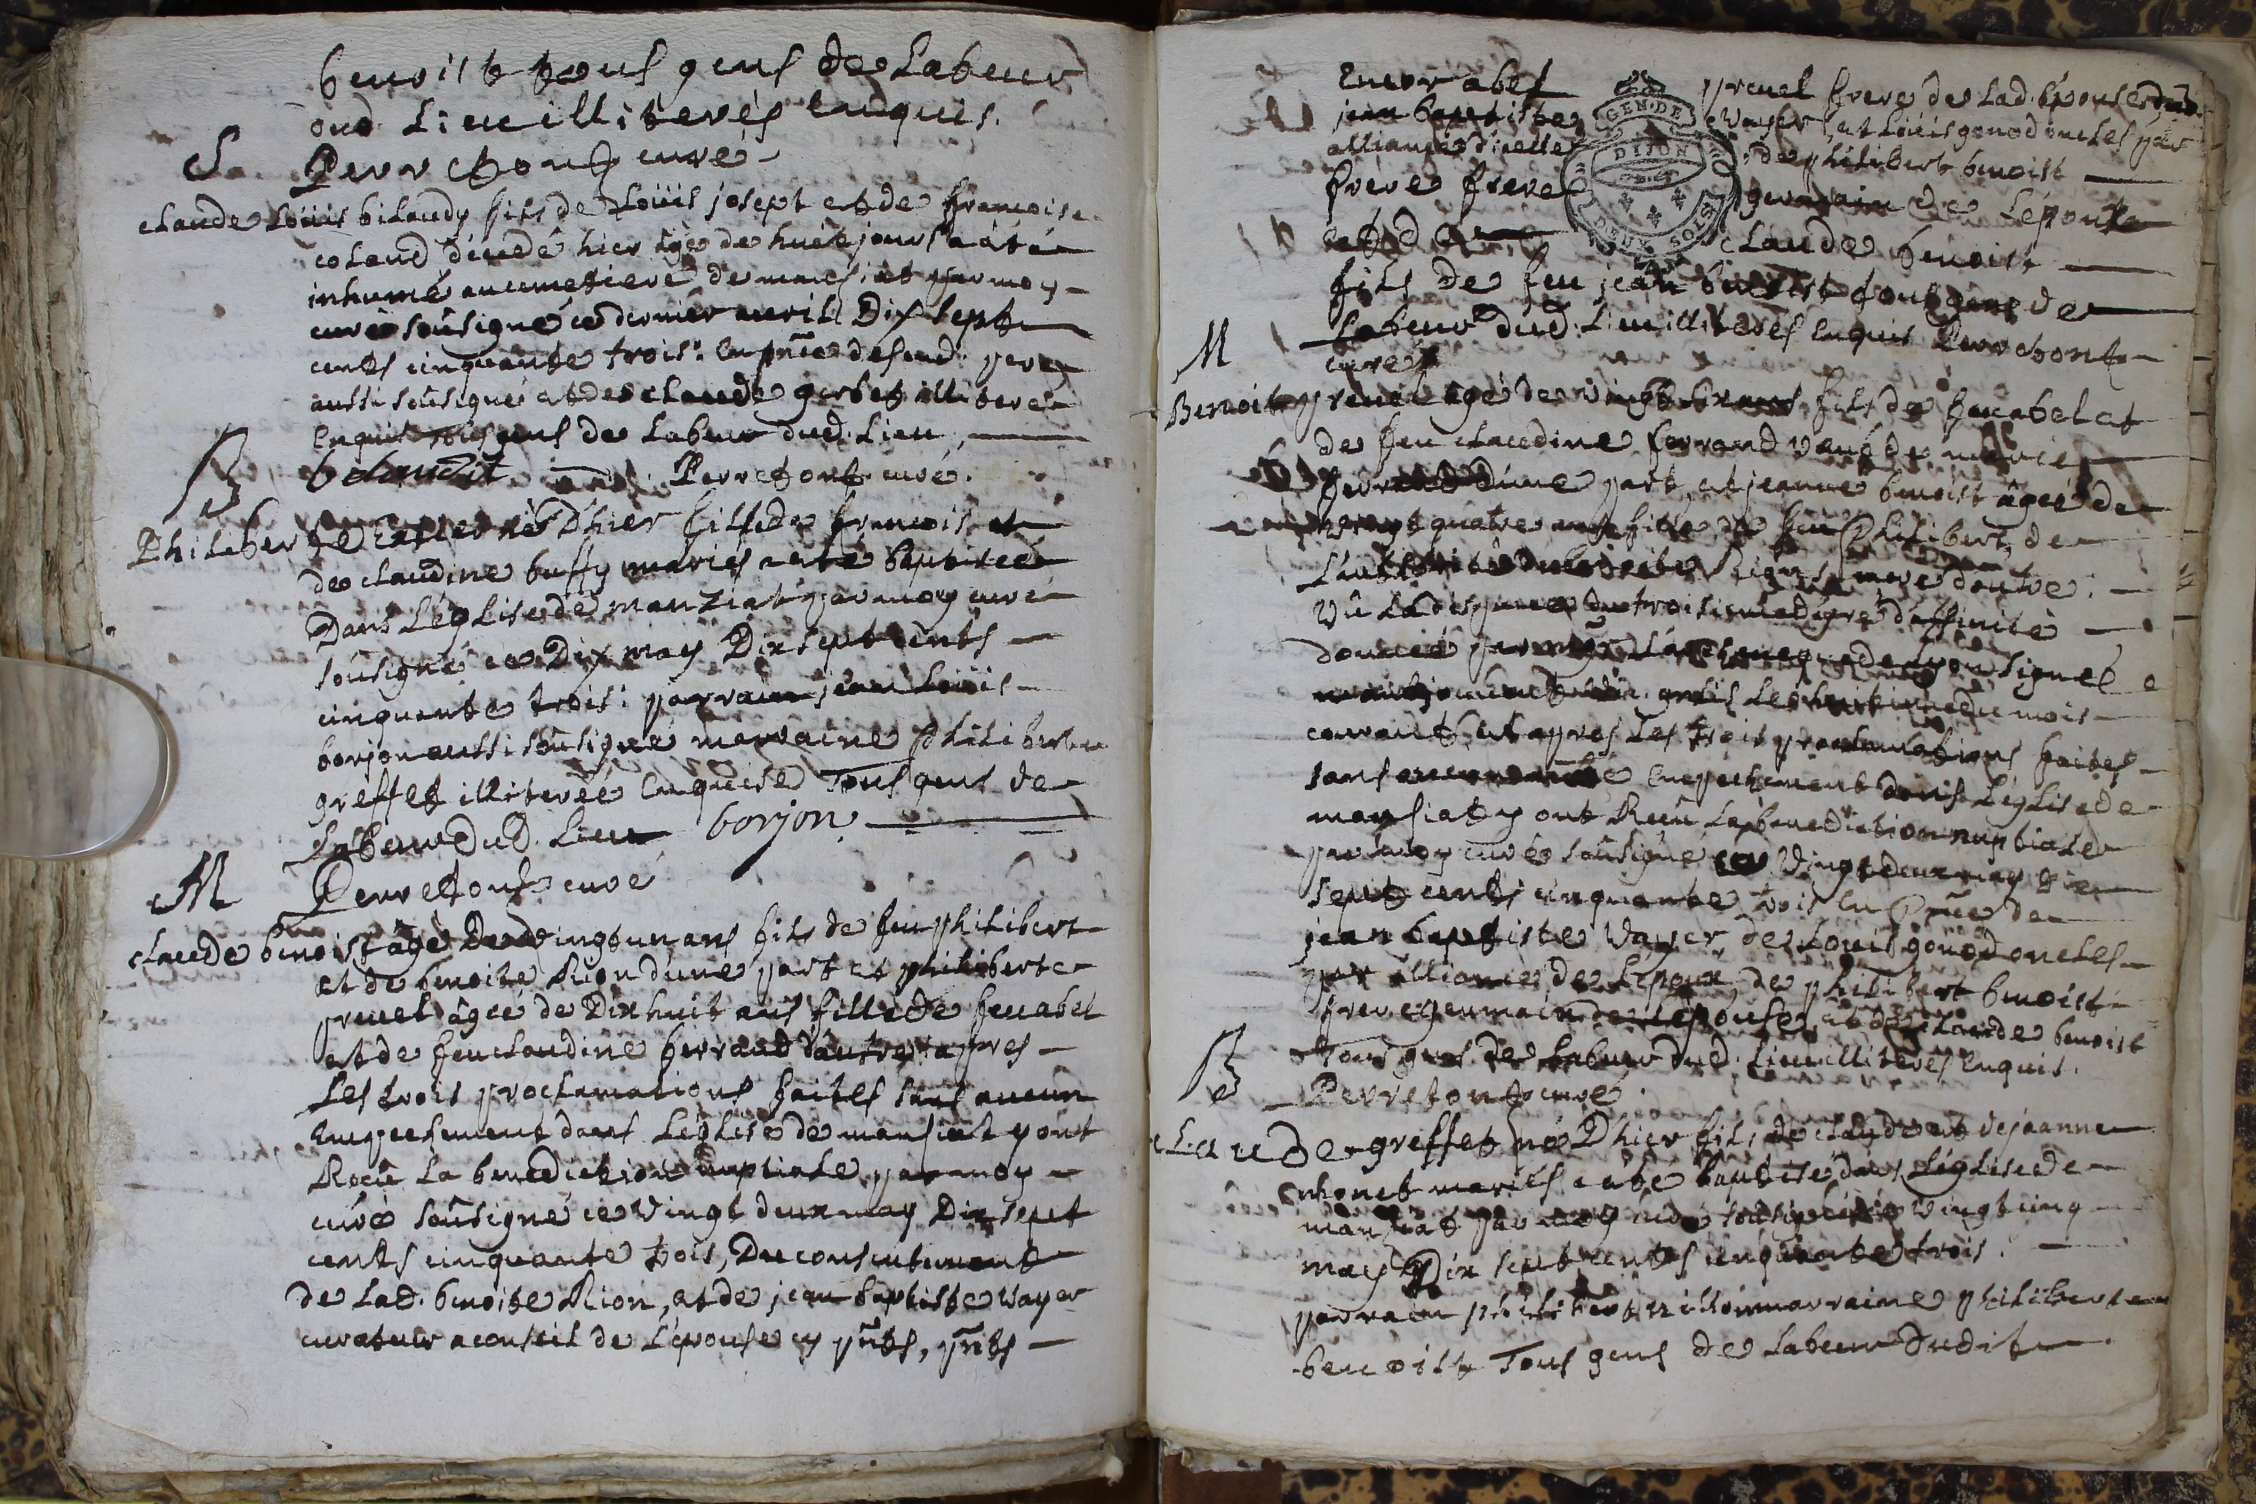 benoist tous gens de Labeur
dud. Lieu illiterés Enquis.
S. Perretont curé
claude Loüis bilaudy fils de Loüis josept et de francoise
coland décédé hier âgé de huit jours a été
inhumé au cimetiere de mansiat par moy
curé soûsigné ce dernier avril Dix sept
cents cinquante trois: En pñce desend. pere
aussi soûsigné et de claude gerbet illiteré
Enquis tous gens de Labeur dud. Lieu
B belaudit Perretont curé.
Philiberte née D'hier fille de francois et
de claudine buffy mariés a eté baptisée
Dans L'église de manziat par moy curé
soûsigné ce Dix may Dix sept cents
cinquante trois: parrain jean Loüis
borjon aussi soûsigné marraine philiberte
greffet illiterée Enquise Tous gens de
Labeur dud. Lieu borjon
M Perretont curé
claude benoist âgé De vingt un ans fils de feu philibert
et de benoite Rion d'une part et philiberte
pruel âgée de Dix huit ans fille de feu abel
et de feu claudine ferrand d'autre appres
Les trois proclamations faites sans aucun
Empechement dans L'églisse de mansiat y ont
Reçu La benediction nuptiale par moy
curé soûsigné ce vingt deux may Dix sept
cents cinquante trois, Du consentement
de Lad. benoite Rion, et de jean baptiste vayer
curateur a conseil de L'epouse cy pñts, pñts
Encor abel pruel frere de Lad. épouse, dud.
jean baptiste vayer et Loüis gonod oncles par
alliance d'icelle, de philibert benoist
frere germain de L'epoux
et de claude benoist
fils de feu jean benoist tous gens de
Labeur dud. Lieu illiterés Enquis Perretont
curé
M
Benoit pruel âgé de vingt ans fils de feu abel et
de feu claudine ferrand
d'une part, et jeanne benoist âgée de
vingt quatre ans fille de feu Philibert, de
L'authorité de benoite Rion sa mere d'autre:
vû La dispense du troisieme degré d'affinité
donnée par signé
Le huitieme du mois
courant, et apres Les trois proclamations faites
sans aucun Empechement dans L'églisse de
mansiat y ont Reçu La benediction nuptiale
par moy curé soûsigné ce vingt deux may Dix
sept cents cinquante trois En Pñce de
jean baptiste vayer, de Loüis gonod oncles
par alliance de L'epoux, de philibert benoist
frere germain de L'epouse, et de claude benoist
tous gens de Labeur dud. Lieu illiterés Enquis.
B Perretont curé.
claude greffet né D'hier fils de claude et de jeanne
mariés a eté baptisé dans L'églisse de
mansiat par moy curé soûsigné ce vingt cinq
may Dix sept cents cinquante trois.
parrain philibert marraine philiberte
benoist Tous gens de Labeur dudit
GEN. DE
DIJON
DEUX SOLS